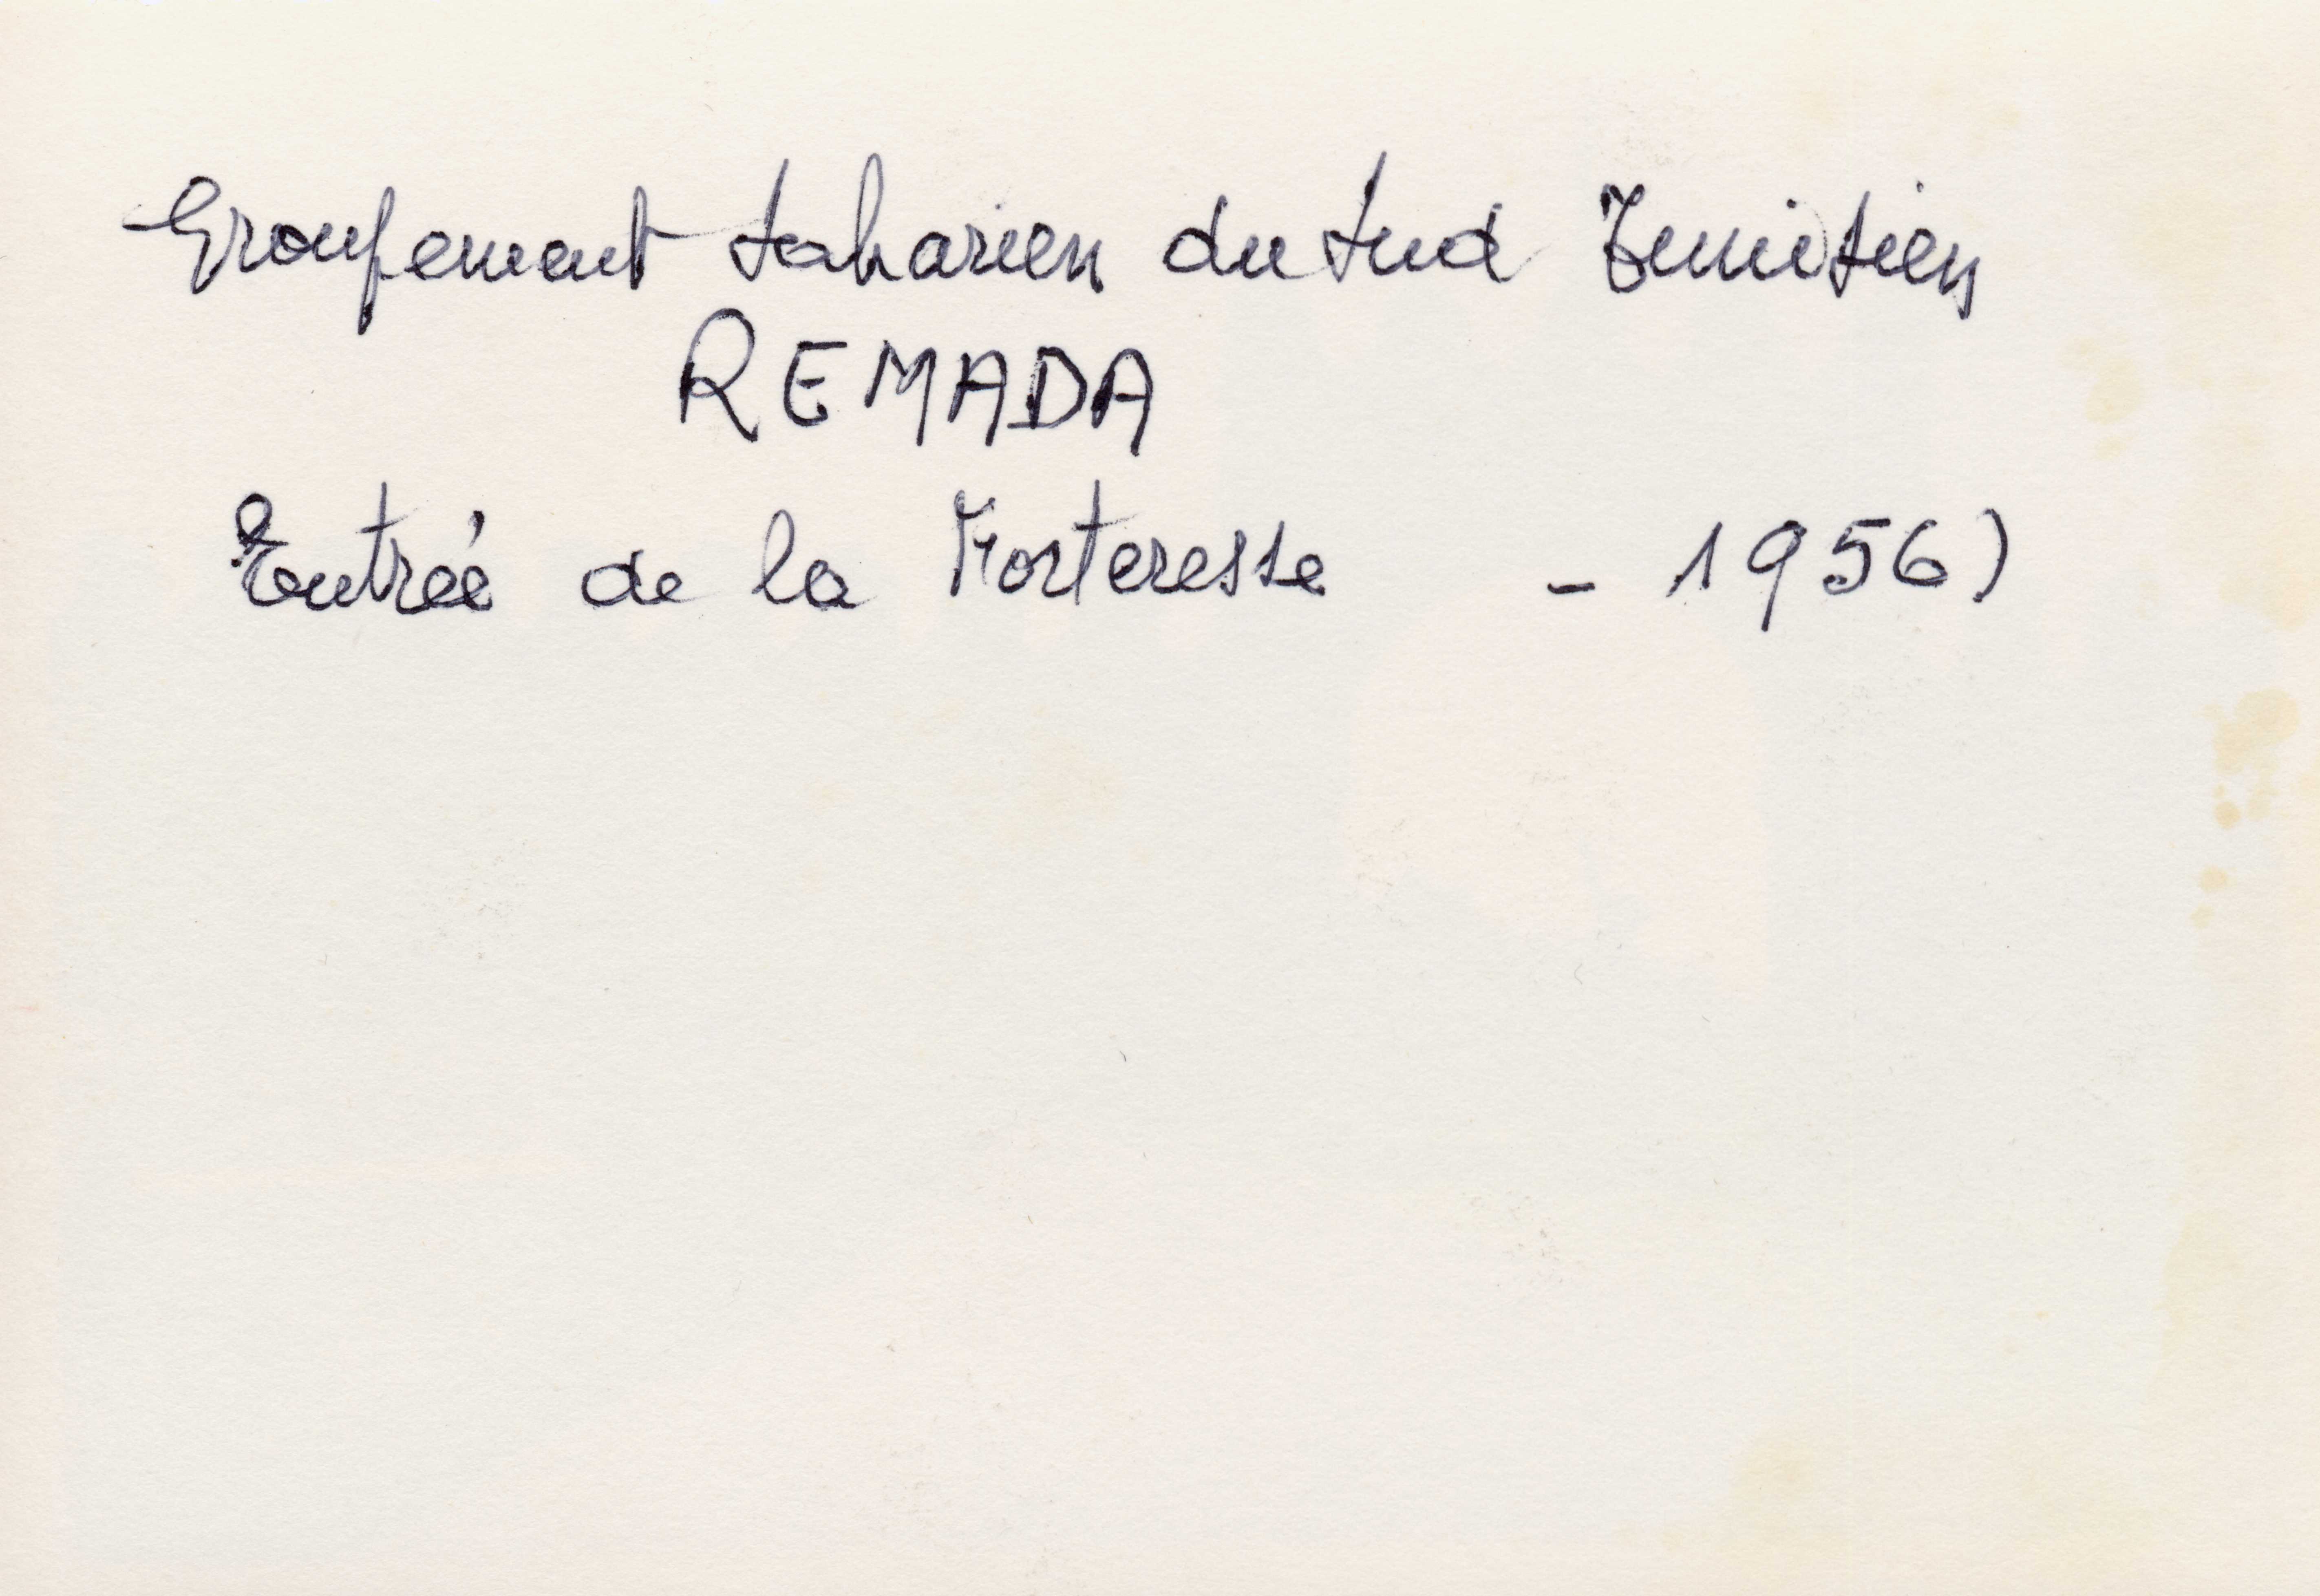 Groupement saharien du sud Tunisien
REMADA
Entrée de la Forteresse - 1956)